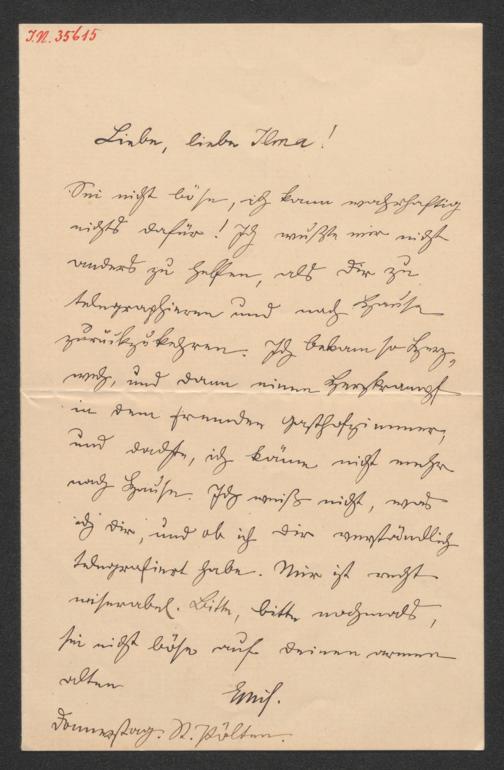 I.N. 35615
Liebe, liebe Ilma!
Sei nicht böse, ich kann wahrhaftig
nichts dafür! Ich wußte mir nicht
anders zu helfen, als Dir zu
telegraphieren und nach Hause
zurückzukehren. Ich bekam so Herz-
weh, und dann einen Herzkrampf
in dem fremden Gasthofzimmer,
und dachte, ich käme nicht mehr
nach Hause. Ich weiß nicht, was
ich Dir, und ob ich Dir verständlich
telegrafiert habe. Mir ist recht
miserabel. Bitte, bitte nochmals,
sei nicht böse auf Deinen armen
alten
Emil.
Donnerstag. St. Pölten.